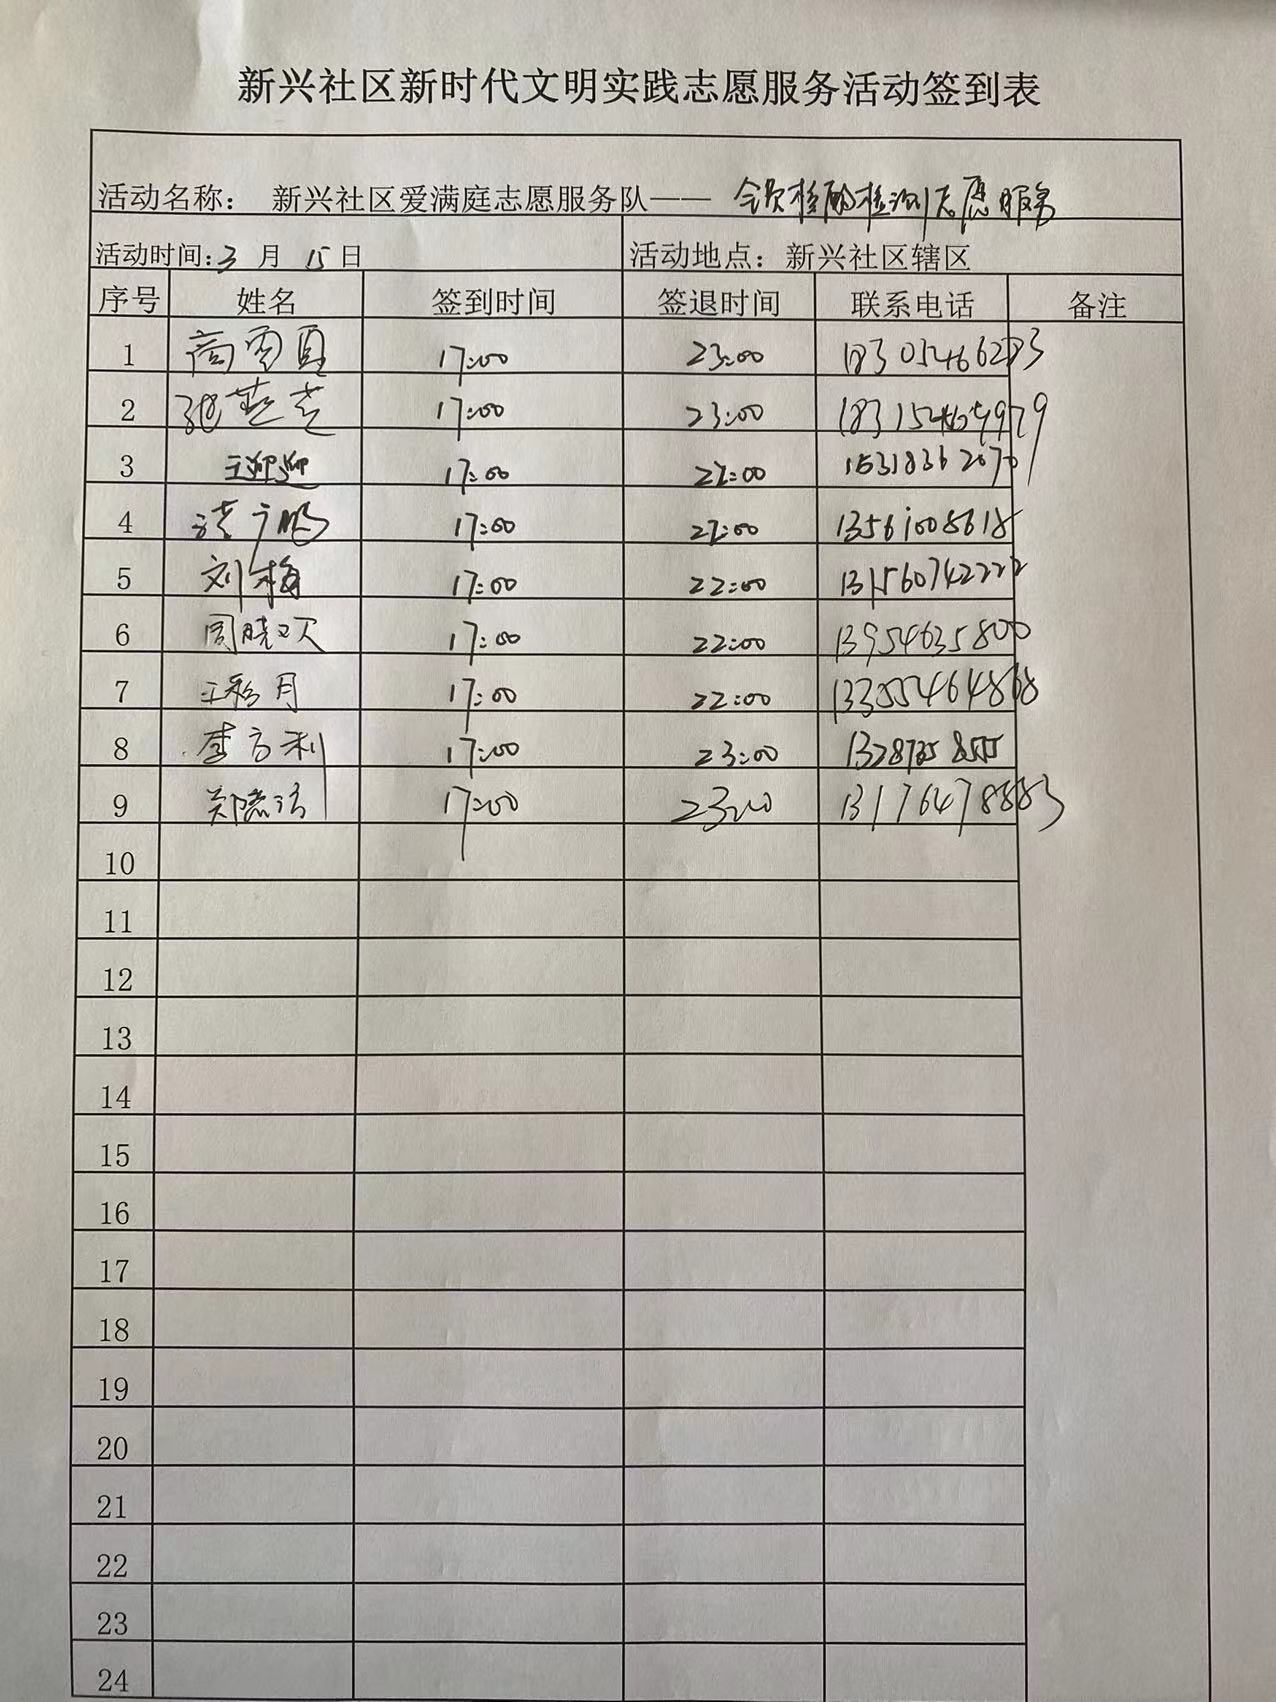 新兴社区新时代文明实践志愿服务活动签到表
活动名称： 新兴社区爱满庭志愿服务队—— 全员核酸检测志愿服务
活动时间:3月 15日 活动地点：新兴社区辖区
序号 姓名 签到时间 签退时间 联系电话 备注
1 17:00 23:00
2 17:00 23:00
3 王迎迎 17:00 22:00
4 17:00 22:00 13561008618
5 刘梅 17:00 22:00 13156074222
6 周晓双 17:00 22:00 13954635800
7 王彩月 17:00 22:00
8 李方利 17:00 23:00
9 17:00 23:00 13176478883
10
11
12
13
14
15
16
17
18
19
20
21
22
23
24